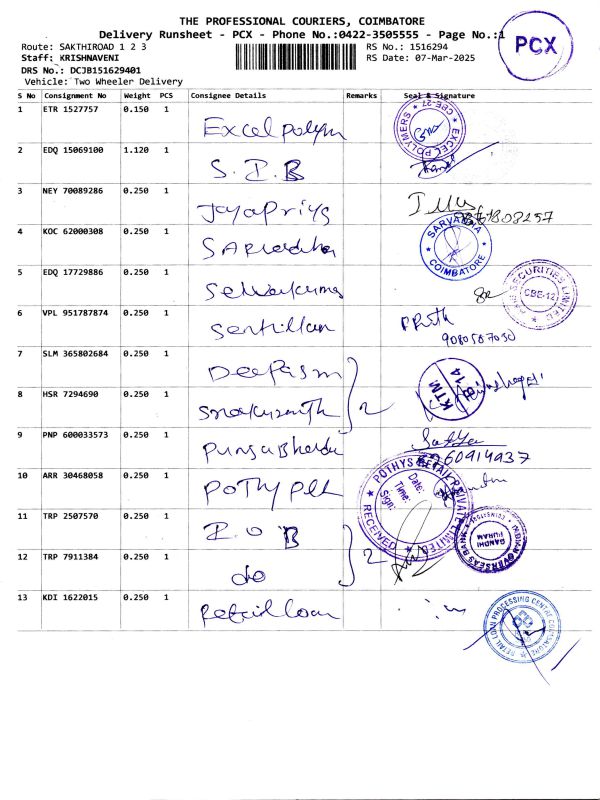 THE PROFESSIONAL COURIERS, COIMBATORE
Delivery Runsheet - PCX - Phone No.:0422-3505555 - Page No.:1
PCX
Route: SAKTHIROAD 1 2 3
RS No.: 1516294
Staff: KRISHNAVENI
RS Date: 07-Mar-2025
DRS No.: DCJB151629401
Vehicle: Two Wheeler Delivery
S No Consignment No Weight PCS Consignee Details Remarks Seal & Signature
1 ETR 1527757 0.150 1 Excel polym
EXCEL POLYMERS * CBE-27 *
2 EDQ 15069100 1.120 1 S.I.B
3 NEY 70089286 0.250 1 Jayapriya
4 KOC 62000308 0.250 1
COIMBATORE
5 EDQ 17729886 0.250 1 Selvakumar
SECURITIES LIMITED
CBE-12
6 VPL 951787874 0.250 1
9080587050
7 SLM 365802684 0.250 1 Deepasm
2
KTM
B 14
8 HSR 7294690 0.250 1
9 PNP 600033573 0.250 1
Sathya
60914937
10 ARR 30468058 0.250 1 Pothy
POTHYS RETAIL PRIVATE LIMITED
Date:
Time:
Sign:
RECEIVED
11 TRP 2507570 0.250 1 I.O.B
2
INDIAN OVERSEAS BANK
GANDHI
PURAM
12 TRP 7911384 0.250 1 do
13 KDI 1622015 0.250 1 Retail loan
RETAIL LOAN PROCESSING CENTRE COIMBATORE